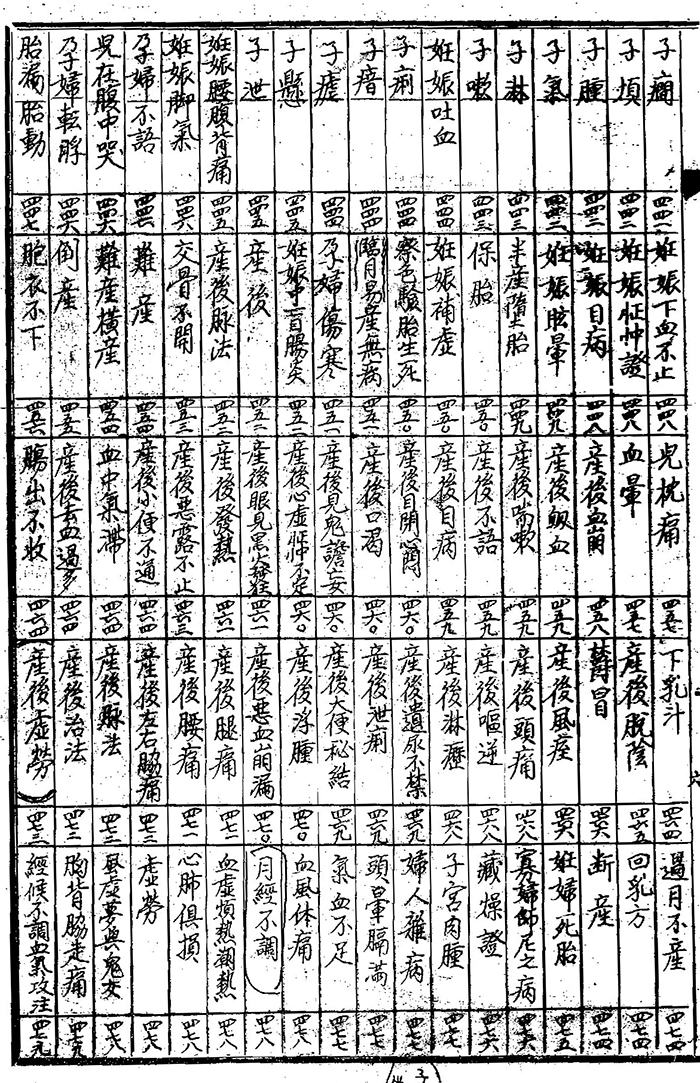 子癇 四四一
子煩 四四二
子腫 四四二
子氣 四四二
子淋 四四三
子嗽 四四三
妊娠吐血 四四四
子痢 四四四
子瘖 四四四
子瘧 四四四
子懸 四四五
子泄 四四五
妊娠腰腹背痛 四四五
妊娠脚氣 四四六
孕婦不語 四四六
兒在腹中哭 四四六
孕婦転脬 四四六
胎漏胎動 四四七
妊娠下血不止 四四八
妊娠怔忡證 四四八
妊娠目病 四四八
妊娠眩暈 四四九
半産墮胎 四四九
保胎 四五〇
妊娠補虛 四五〇
察色驗胎生死 四五〇
臨月易産無病 四五一
孕婦傷寒 四五一
妊娠中盲腸炎 四五二
産後 四五二
産後脉法 四五二
交骨不開 四五三
難産 四五四
難産橫産 四五四
倒産 四五五
胞衣不下 四五六
兒枕痛 四五七
血暈 四五七
産後血崩 四五八
産後衂血 四五九
産後喘嗽 四五九
産後不語 四五九
産後目病 四五九
産後目閉心悶 四六〇
産後口渴 四六〇
産後見鬼譫妄 四六〇
産後心虛怔忡不定 四六〇
産後眼見黑火發狂 四六一
産後發熱 四六一
産後惡露不止 四六三
産後小便不通 四六四
血中氣滯 四六四
産後去血過多 四六四
腸出不收 四六四
下乳汁 四六四
産後脫陰 四六五
欝冒 四六六
産後風痓 四六六
産後頭痛 四六八
産後嘔逆 四六八
産後淋瀝 四六八
産後遺尿不禁 四六九
産後泄痢 四六九
産後大便秘結 四六九
産後浮腫 四七〇
産後惡血崩漏 四七〇
産後腿痛 四七二
産後腰痛 四七二
産後左右脇痛 四七三
産後脉法 四七三
産後治法 四七三
産後虛勞 四七三
過月不産 四七四
回乳方 四七四
断産 四七四
妊婦死胎 四七五
寡婦師尼之病 四七六
藏燥證 四七六
子宮肉腫 四七七
婦人雜病 四七七
頭暈膈満 四七七
氣血不足 四七七
血風体痛 四七八
月經不調 四七八
血虛煩熱潮熱 四七八
心肺俱損 四七八
虛勞 四七八
風虛夢與鬼交 四七八
胸背脇走痛 四七九
經候不調血氣攻注 四七九